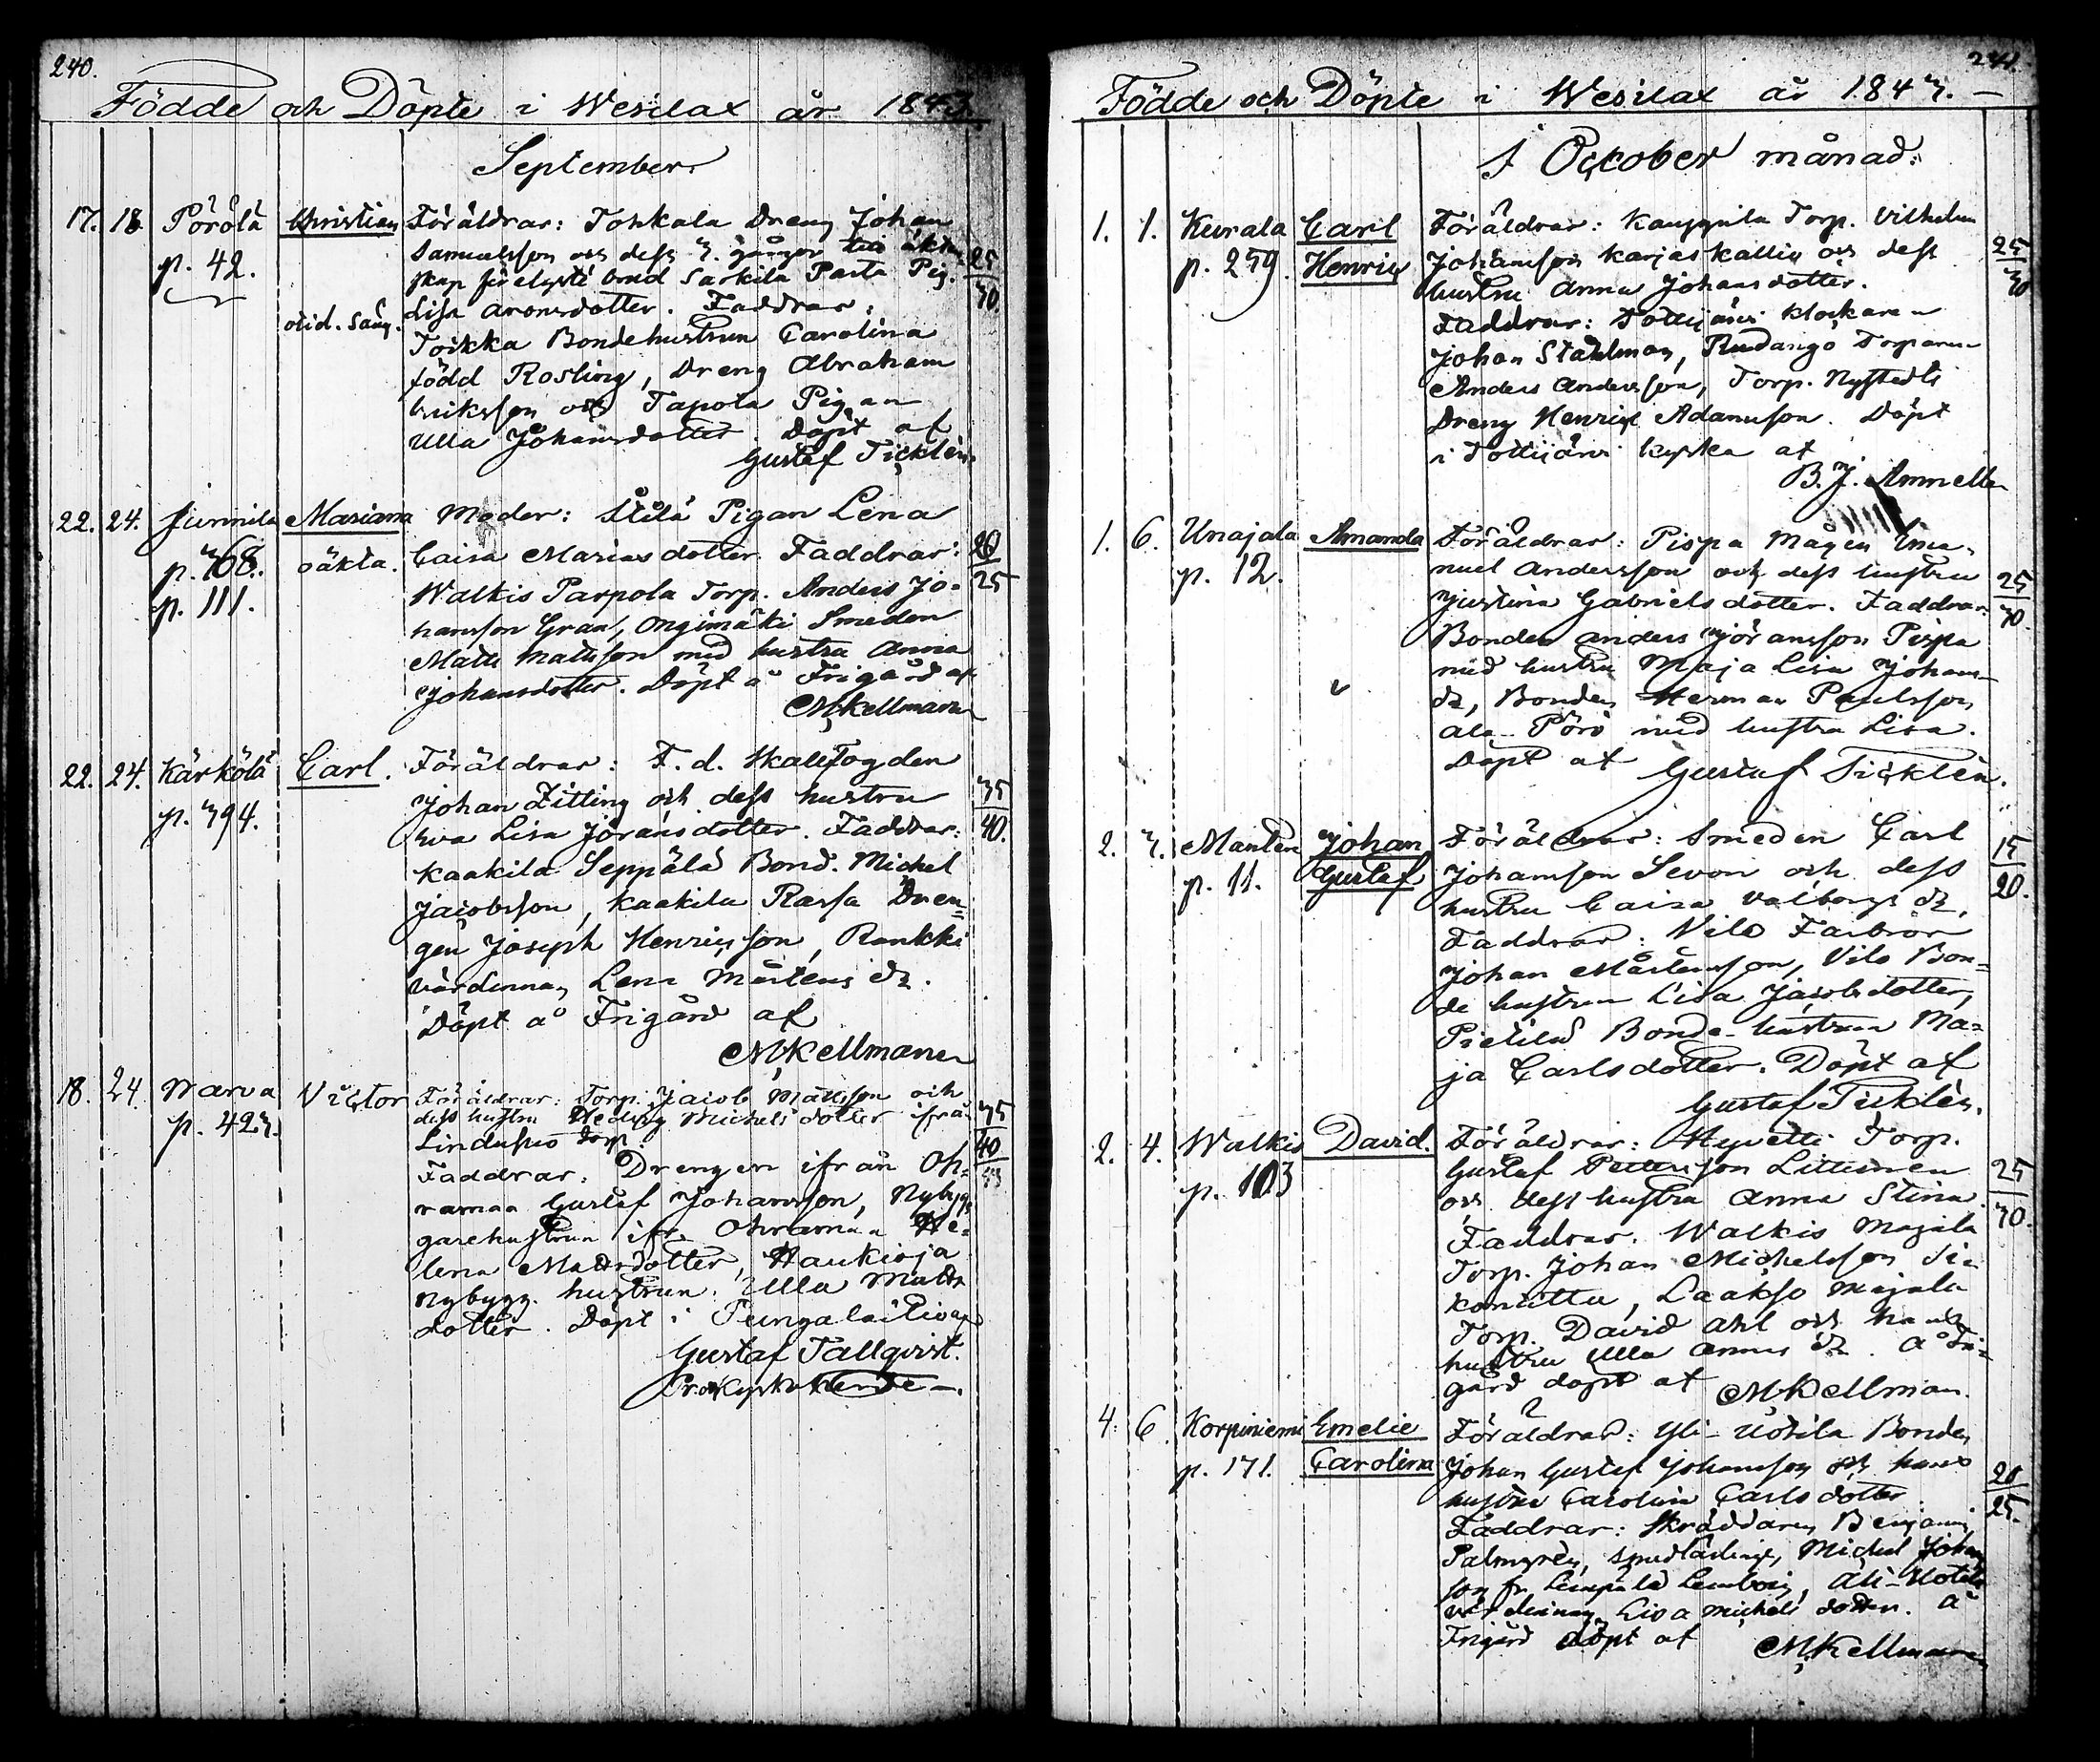 240.
Födde och Döpte i Wesilax år 1843.
September
17. 18. Pörölä Christian Föräldrar: Tohkala Dreng Johan
p. 42. Samuelsson och dess 3. gånger till äkten
skap förelyste brud Sarkila Pasta Pig.
25
30.
Lisa Aronsdotter. Faddrar:
oid. säng.
Toikka Bondehustrun Carolina
född Rosling, Dreng Abraham
Eriksson och Tapola Pigan
Ulla Johansdotter. Döpt af
Gustaf Ticklén.
22. 24. Junnila Mariana Moder: Ståla Pigan Lena
p. 368. oäkta. Caisa Mariasdotter. Faddrar:
20
25
p. 111. Walkis Parpola Torp. Anders Jo-
hansson Gran, Ongimäki Smeden
Matts Mattsson med hustru Anna
Johansdotter. Döpt å Frigård af
M. Kellman
22. 24. Kärkölä Carl. Föräldrar: F. d. Skallfogden
p. 394. Johan Zitting och dess hustru
35
40.
Eva Lisa Jöransdotter. Faddrar:
Kaakila Seppälä Bond. Michel
Jacobsson, Kaakila Rassa Dren-
gen Joseph Henricsson, Rankki
värdinnan Lena Mårtens dr.
Döpt å Frigård af
M. Kellman
18. 24. Narva Victor Föräldrar: Torp. Jacob Mattsson och
p. 423. dess hustru Hedvig Michelsdotter ifrån
35
40
43
Lindusuo Torp.
Faddrar: Drengen ifrån Oh-
ramaa Gustaf Johansson, Nybyg-
garehustrun ifr. Ohramaa He-
lena Mattsdotter, Haukioja
Nybygg. hustrun Ulla Matts
dotter. Döpt i Pungalaitio af
Gustaf Tallqvist.
241.
Födde och Döpte i Wesilax år 1843. —
i October månad:
1. 1. Kurala Carl Föräldrar: Kauppila Torp. Vilhelm
p. 259. Henric Johansson Karjaskallio och dess
25
30
hustru Anna Johansdotter.
Faddrar: Tottijärvi Klockaren
Johan Stadman, Rudangö Torparen
Anders Andersson, Torp. Nystedts
Dreng Henric Adamsson. Döpt
i Tottijärvi kyrka af
B. J. Amnelle
1. 6. Unajala Amanda Föräldrar: Pispa Mågen Ema-
p. 12. nuel Andersson och dess hustru
25
30.
Justina Gabrielsdotter. Faddrar
Bonden Anders Jöransson Pispa
med hustru Maja Lisa Johans-
dr, Bonden Herman Paulsson
Ala-Pörö med hustru Lisa.
Döpt af Gustaf Ticklén.
2. 3. Mantere Johan Föräldrar: Smeden Carl
p. 11. Gustaf Johansson Sevon och dess
15
20.
hustru Caisa Valborgs dr,
Faddrar: Vilo Farbror
Johan Mårtensson, Vilo Bon-
de hustrun Lisa Jacobsdotter,
Pietilä Bonde-hustrun Ma-
ja Carlsdotter. Döpt af
Gustaf Ticklén.
2. 4. Walkis David. Föräldrar: Hyvetti Torp.
p. 103 Gustaf Pettersson Littunen
25
30.
och dess hustru Anna Stina.
Faddrar. Walkis Majala
Torp. Johan Michelsson Si-
konitta, Laakso Majala
Torp. David Ahl och hans
hustru Ulla Annas dr. å Fri-
gård döpt af M. Kellman.
4. 6. Korpiniemi Emelie Föräldrar: Yli-Uotila Bonden
p. 171. Carolina Johan Gustaf Johansson och hans
20
25.
hustru Carolin Carlsdotter.
Faddrar: Skräddaren Benjamin
Palmgrén, smedlärling Michel Johans
son fr. Lempälä Lembois, Ali-Uotila
värdinnan Lisa Michelsdotter. å
Frigård döpt af M. Kellman